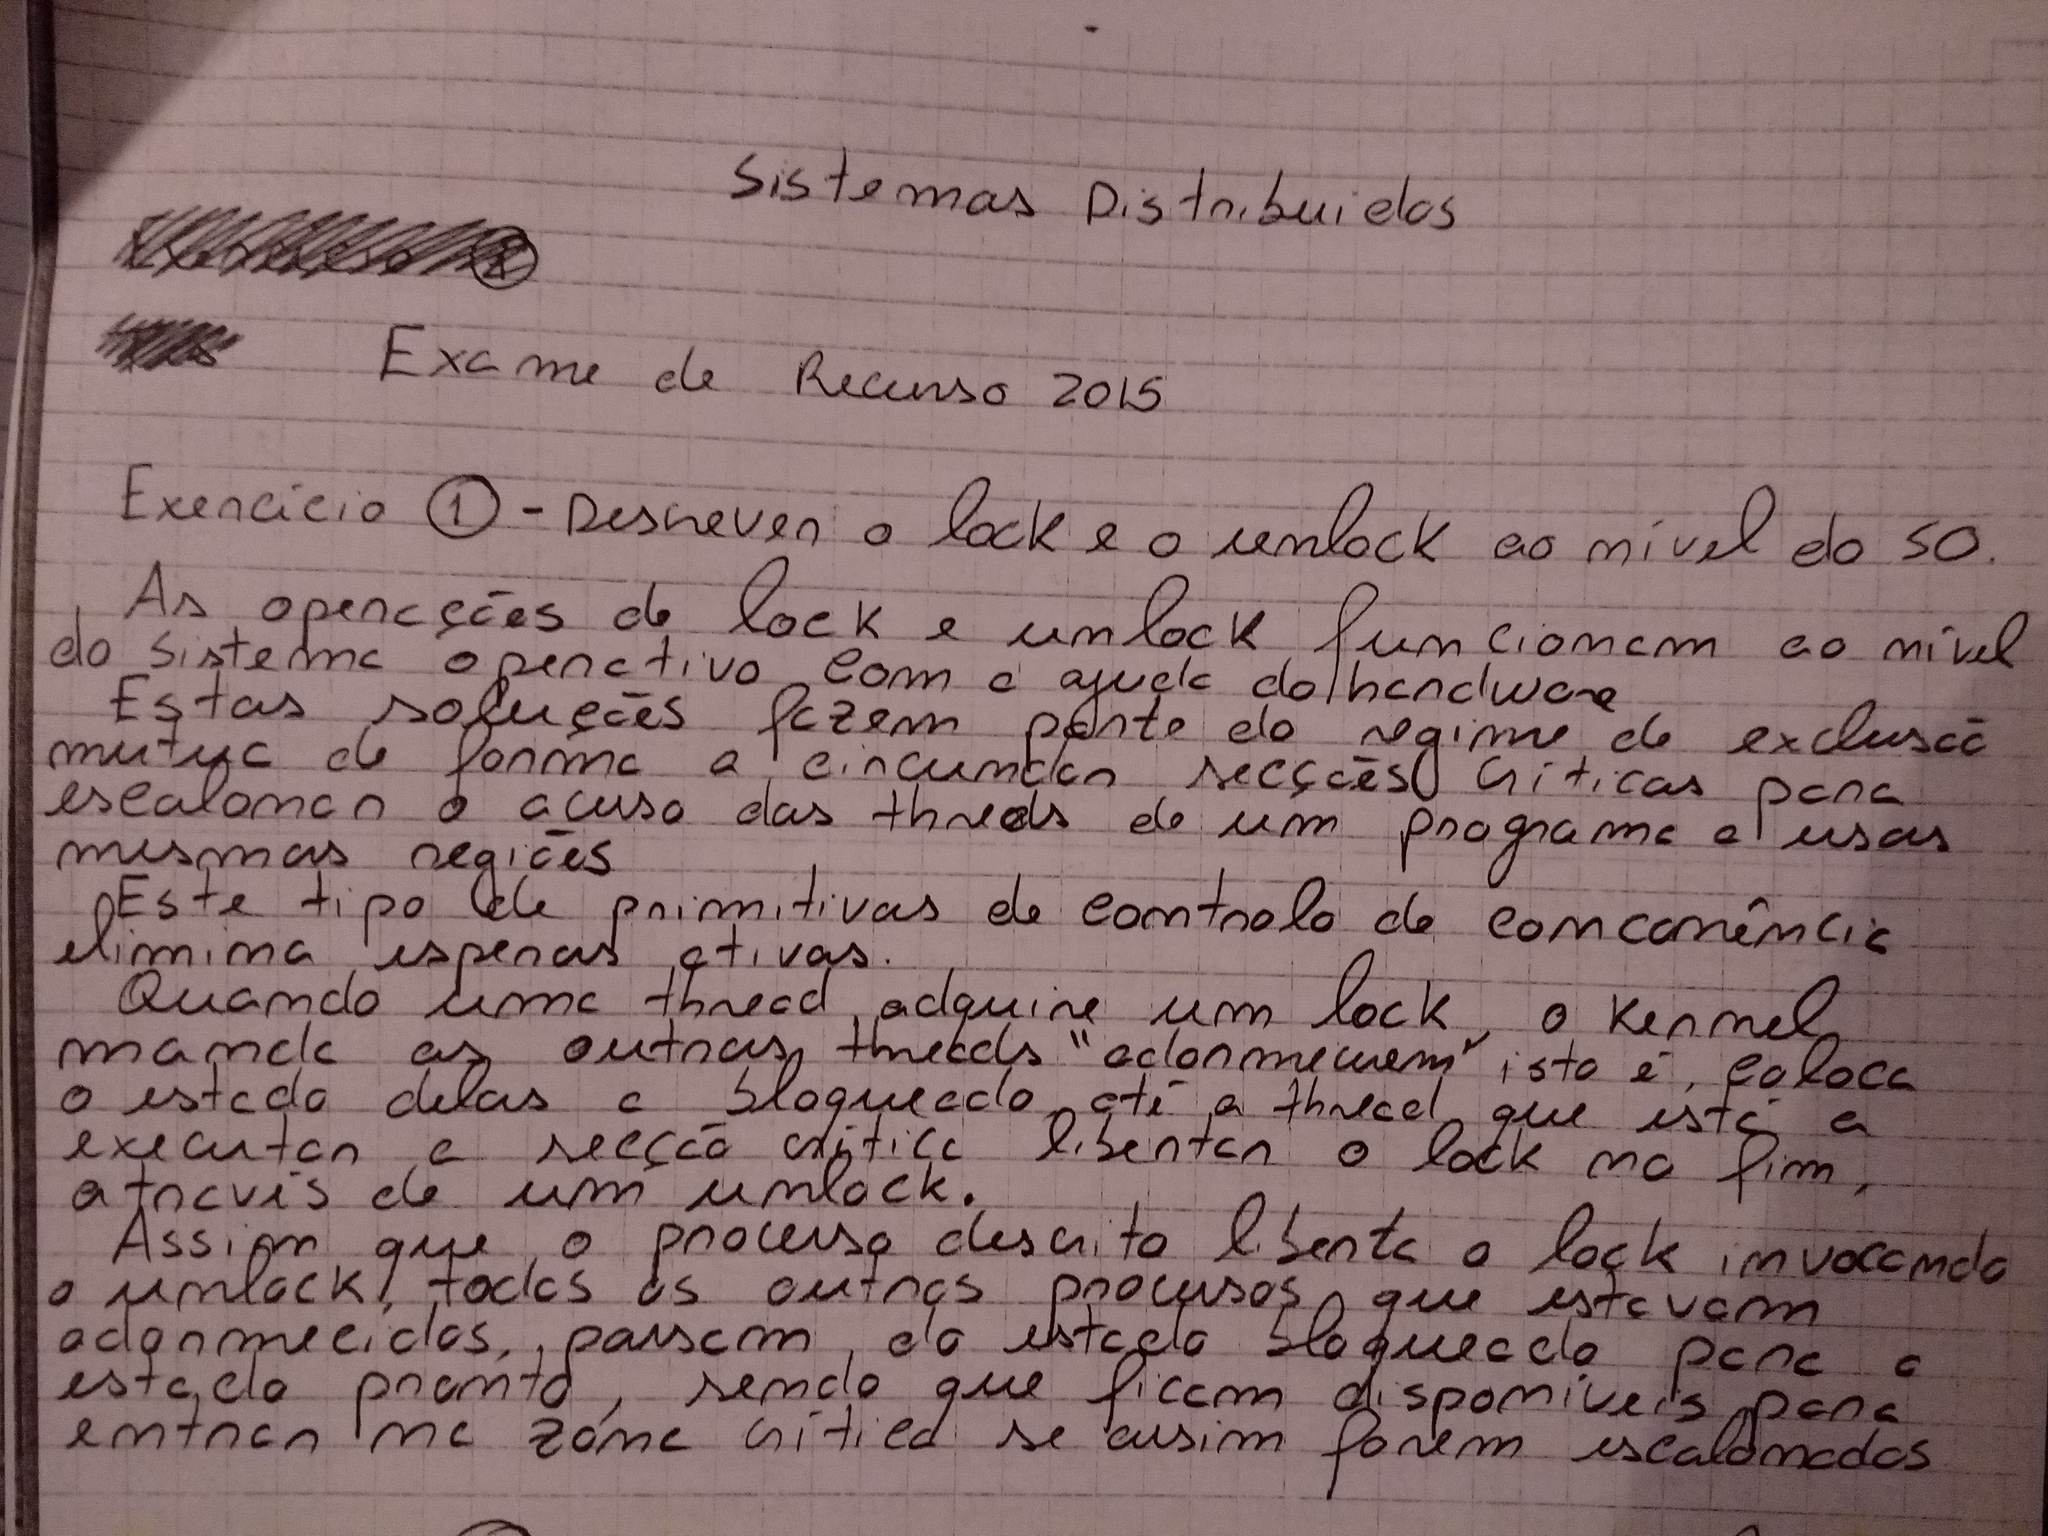 Sistemas Distribuidos
Exame de Recurso 2015
Exercício ① - Descrever o lock e o unlock ao nível do SO.
As operações de lock e unlock funcionam ao nível
do sistema operativo com a ajuda do hardware
Estas soluções fazem parte do regime de exclusão
mutua de forma a circundar secções críticas para
escalonar o acesso das threads de um programa a usas
mesmas regiões
Este tipo de primitivas de controlo de concorrência
elimina esperas ativas.
Quando uma thread adquire um lock, o Kernel
manda as outras threads "adormecerem" isto é, coloca
o estado delas a bloqueado até a thread que está a
executar a secção crítica libertar o lock no fim,
através de um unlock.
Assim que o processo descrito liberta o lock invocando
o unlock, todos os outros processos que estavam
adormecidos, passam do estado bloqueado para o
estado pronto, sendo que ficam disponíveis para
entrar na zona crítica se assim forem escalonados